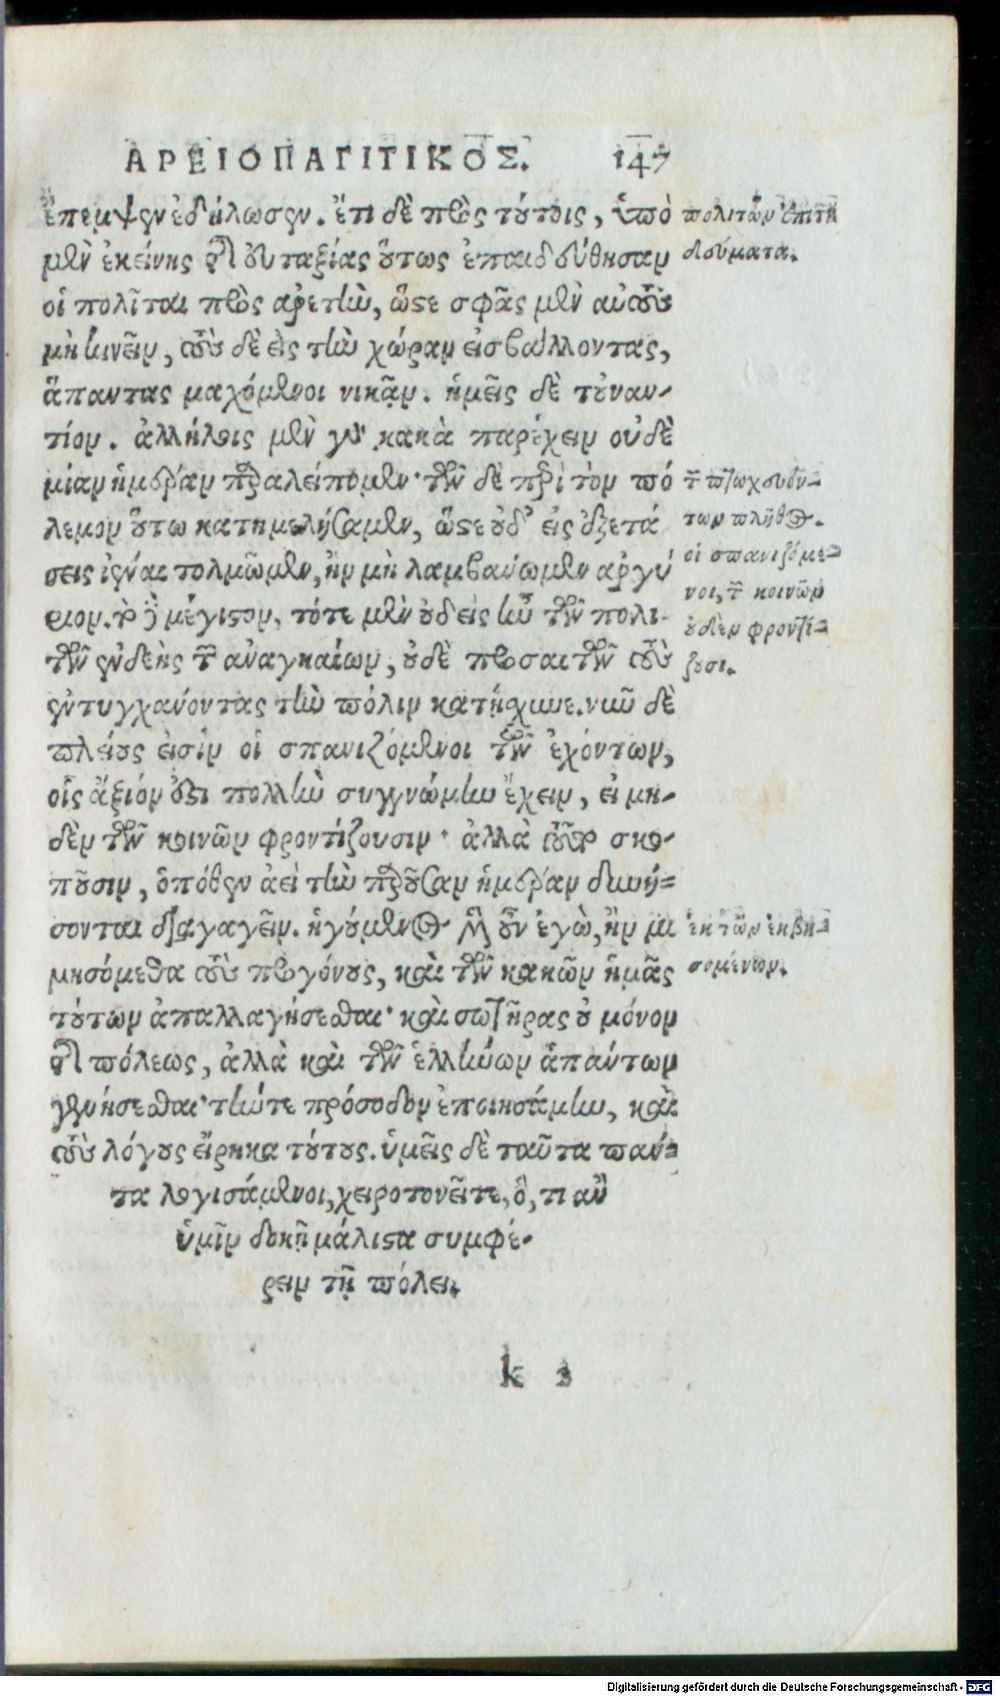 ΑΡΕΙΟΠΑΓΙΤΙΚΟΣ. 147
ἔπεμψεν ἐδήλωσεν. ἔτι δὲ πρὸς τούτοις, ὑπὸ
μὲν ἐκείνης τῆς εὐταξίας οὕτως ἐπαιδεύθησαν
οἱ πολῖται πρὸς ἀρετὴν, ὥστε σφᾶς μὲν αὐτοὺς
μὴ κινεῖν, τοὺς δὲ εἰς τὴν χώραν εἰσβάλλοντας,
ἅπαντας μαχόμενοι νικᾷν. ἡμεῖς δὲ τοὐναν-
τίον. ἀλλήλοις μὲν γὰρ κακὰ παρέχειν οὐδὲ
μίαν ἡμέραν παραλείπομεν· τῶν δὲ περὶ τὸν πό
λεμον οὕτω κατημελήσαμεν, ὥστε οὐδ' εἰς ἐξετά
σεις ἰέναι τολμῶμεν, ἢν μὴ λαμβάνωμεν ἀργύ
ριον. τὸ δὲ μέγιστον, τότε μὲν οὐδεὶς ἦν τῶν πολι-
τῶν ἐνδεὴς τῶν ἀναγκαίων, οὐδὲ προσαιτῶν τοὺς
ἐντυγχάνοντας τὴν πόλιν κατῄσχυνε. νῦν δὲ
πλείους εἰσὶν οἱ σπανιζόμενοι τῶν ἐχόντων,
οἷς ἄξιόν ἐστι πολλὴν συγγνώμην ἔχειν, εἰ μη-
δὲν τῶν κοινῶν φροντίζουσιν· ἀλλὰ τοῦτο σκο-
ποῦσιν, ὁπόθεν ἀεὶ τὴν παροῦσαν ἡμέραν δυνή-
σονται διαγαγεῖν. ἡγούμενος μὲν οὖν ἐγὼ, ἢν μι
μησόμεθα τοὺς προγόνους, καὶ τῶν κακῶν ἡμᾶς
τούτων ἀπαλλαγήσεσθαι· καὶ σωτῆρας οὐ μόνον
τῆς πόλεως, ἀλλὰ καὶ τῶν ἑλλήνων ἁπάντων
γενήσεσθαι· τήν τε πρόσοδον ἐποιησάμην, καὶ
τοὺς λόγους εἴρηκα τούτους. ὑμεῖς δὲ ταῦτα πάν-
τα λογισάμενοι, χειροτονεῖτε, ὅ, τι ἂν
ὑμῖν δοκῇ μάλιστα συμφέ-
ρειν τῇ πόλει.
k 2
πολιτῶν ἐπιτη
δεύματα.
τῶν πτωχευόν-
των πλῆθος.
οἱ σπανιζόμε-
νοι, τῶν κοινῶν
οὐδὲν φροντί-
ζουσι.
ἐκ τῶν ἐκβη-
σομένων.
Digitalisierung gefördert durch die Deutsche Forschungsgemeinschaft - DFG